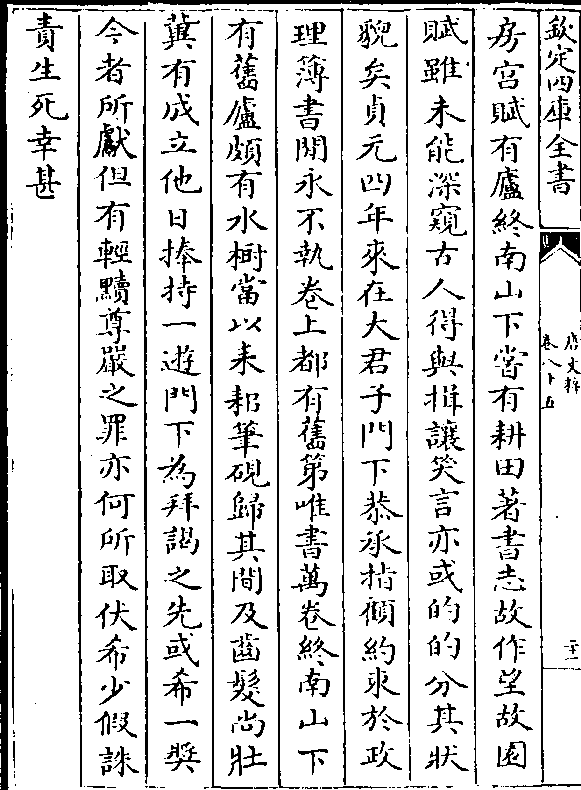 欽定四庫全書
唐文粹
卷八十五
二十一
房宮賦有廬終南山下嘗有耕田著書志故作望故園
賦雖未能深窺古人得與揖讓笑言亦或的的分其狀
貌矣貞元四年來在大君子門下恭承指顧約束於政
理簿書閒永不執卷上都有舊第唯書萬卷終南山下
有舊廬頗有水樹當以耒耜筆硯歸其間及齒髮尚壯
冀有成立他日捧持一遊門下為拜謁之先或希一奬
今者所獻但有輕黷尊嚴之罪亦何所取伏希少假誅
責生死幸甚